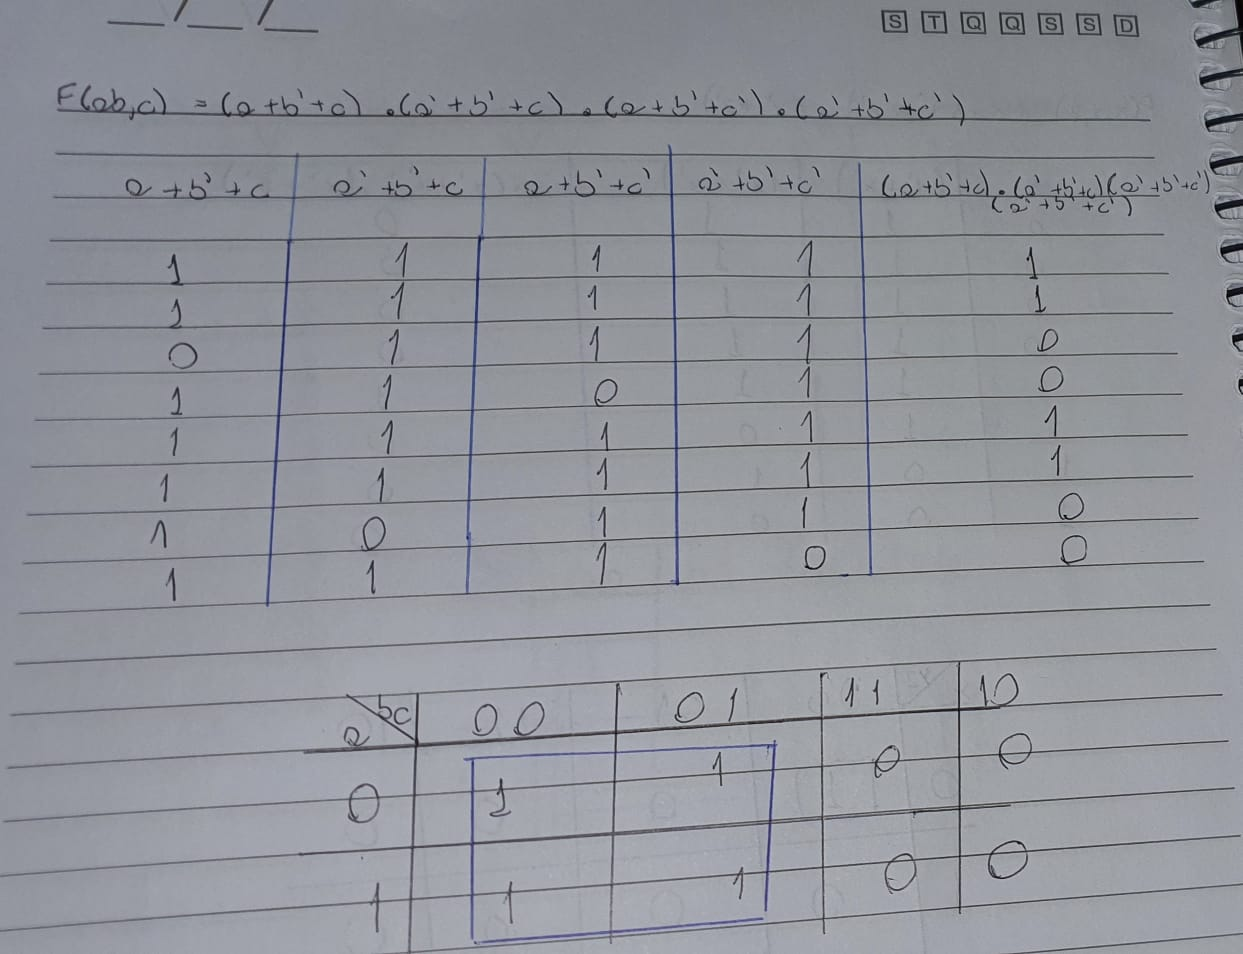 S T Q Q S S D
F(ab,c) = (a+b'+c) . (a'+b'+c) . (a+b'+c') . (a'+b'+c')
a+b'+c a'+b'+c a+b'+c' a'+b'+c' (a+b'+c).(a'+b'+c)(a'+b'+c')
(a'+b'+c')
1 1 1 1 1
1 1 1 1 1
0 1 1 1 0
1 1 0 1 0
1 1 1 1 1
1 1 1 1 1
1 0 1 1 0
1 1 1 0 0
a bc 00 01 11 10
0 1 1 0 0
1 1 1 0 0